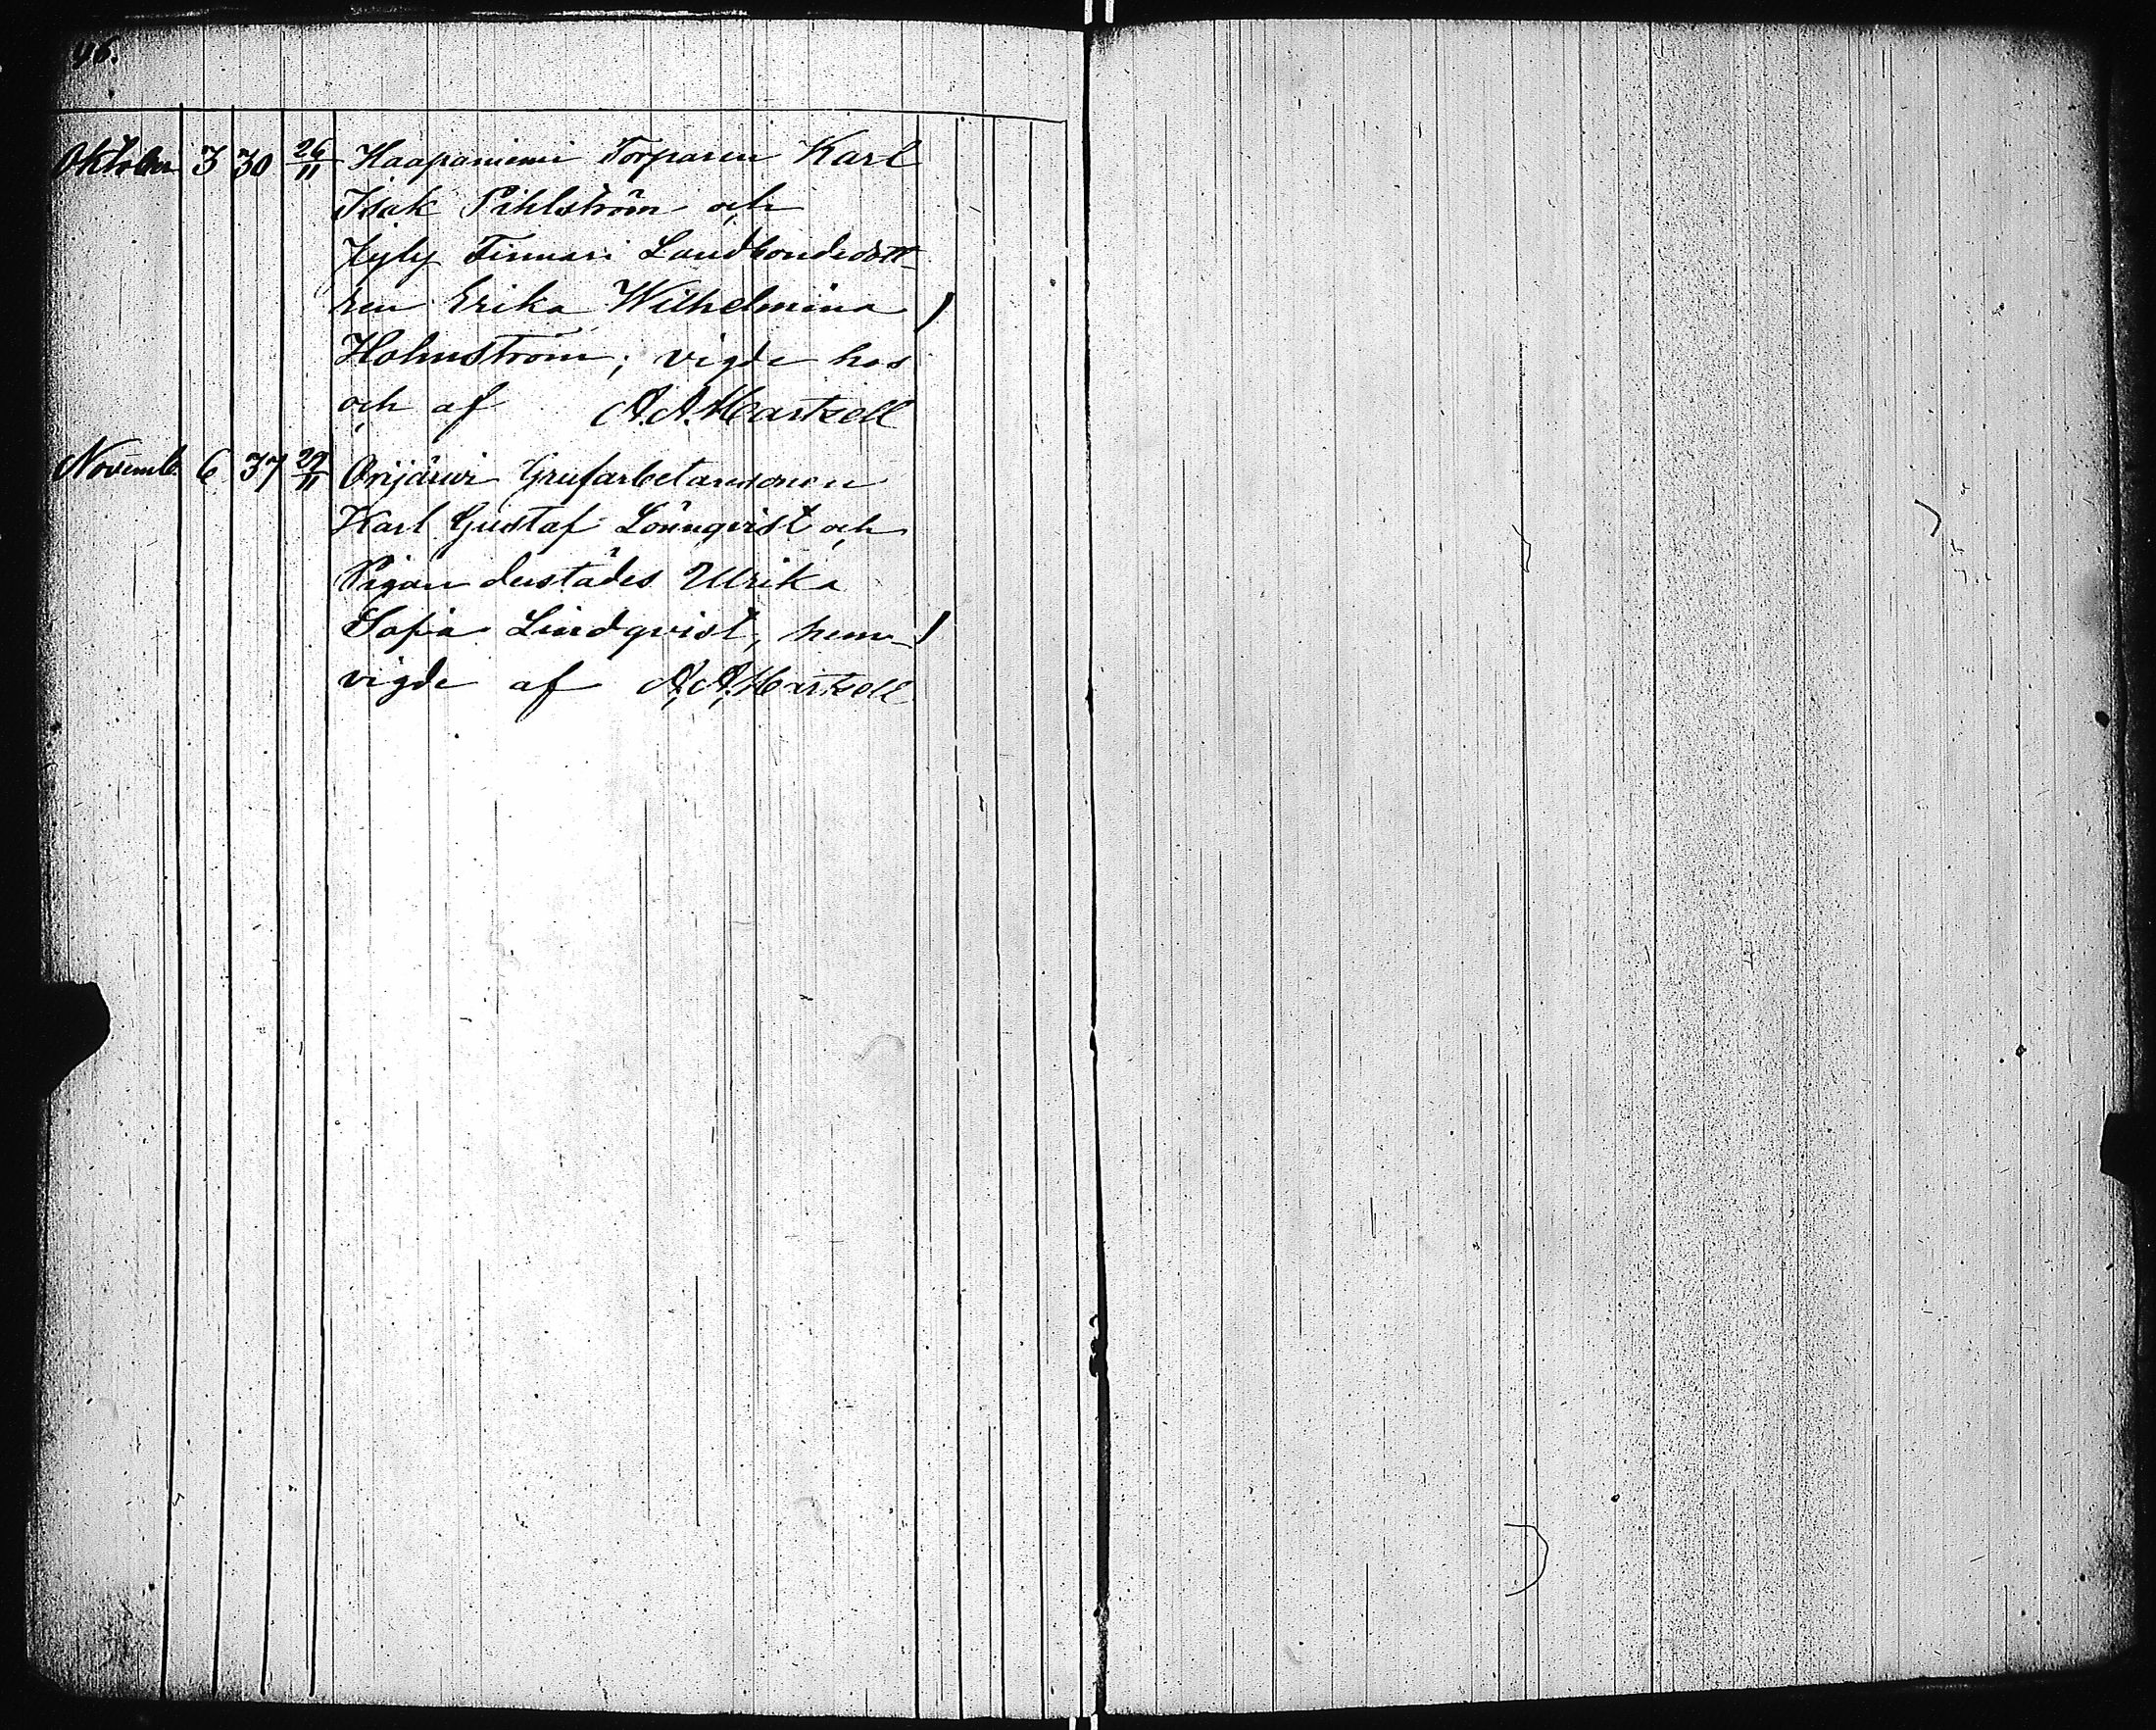 96.
Oktober 3 30 26/11 Haapaniemi Torparen Karl
Isak Pihlström och
Jyly Finnari Landbondedott-
ren Erika Wilhelmina )
Holmström; vigde hos
och af A. A. Hartzell
Novemb. 6 37 29/11 Orijärvi Grufarbetaresonen
Karl Gustaf Lönnqvist och
Pigan derstädes Ulrika
Sofia Lindqvist, hem- )
vigde af A. A. Hartzell